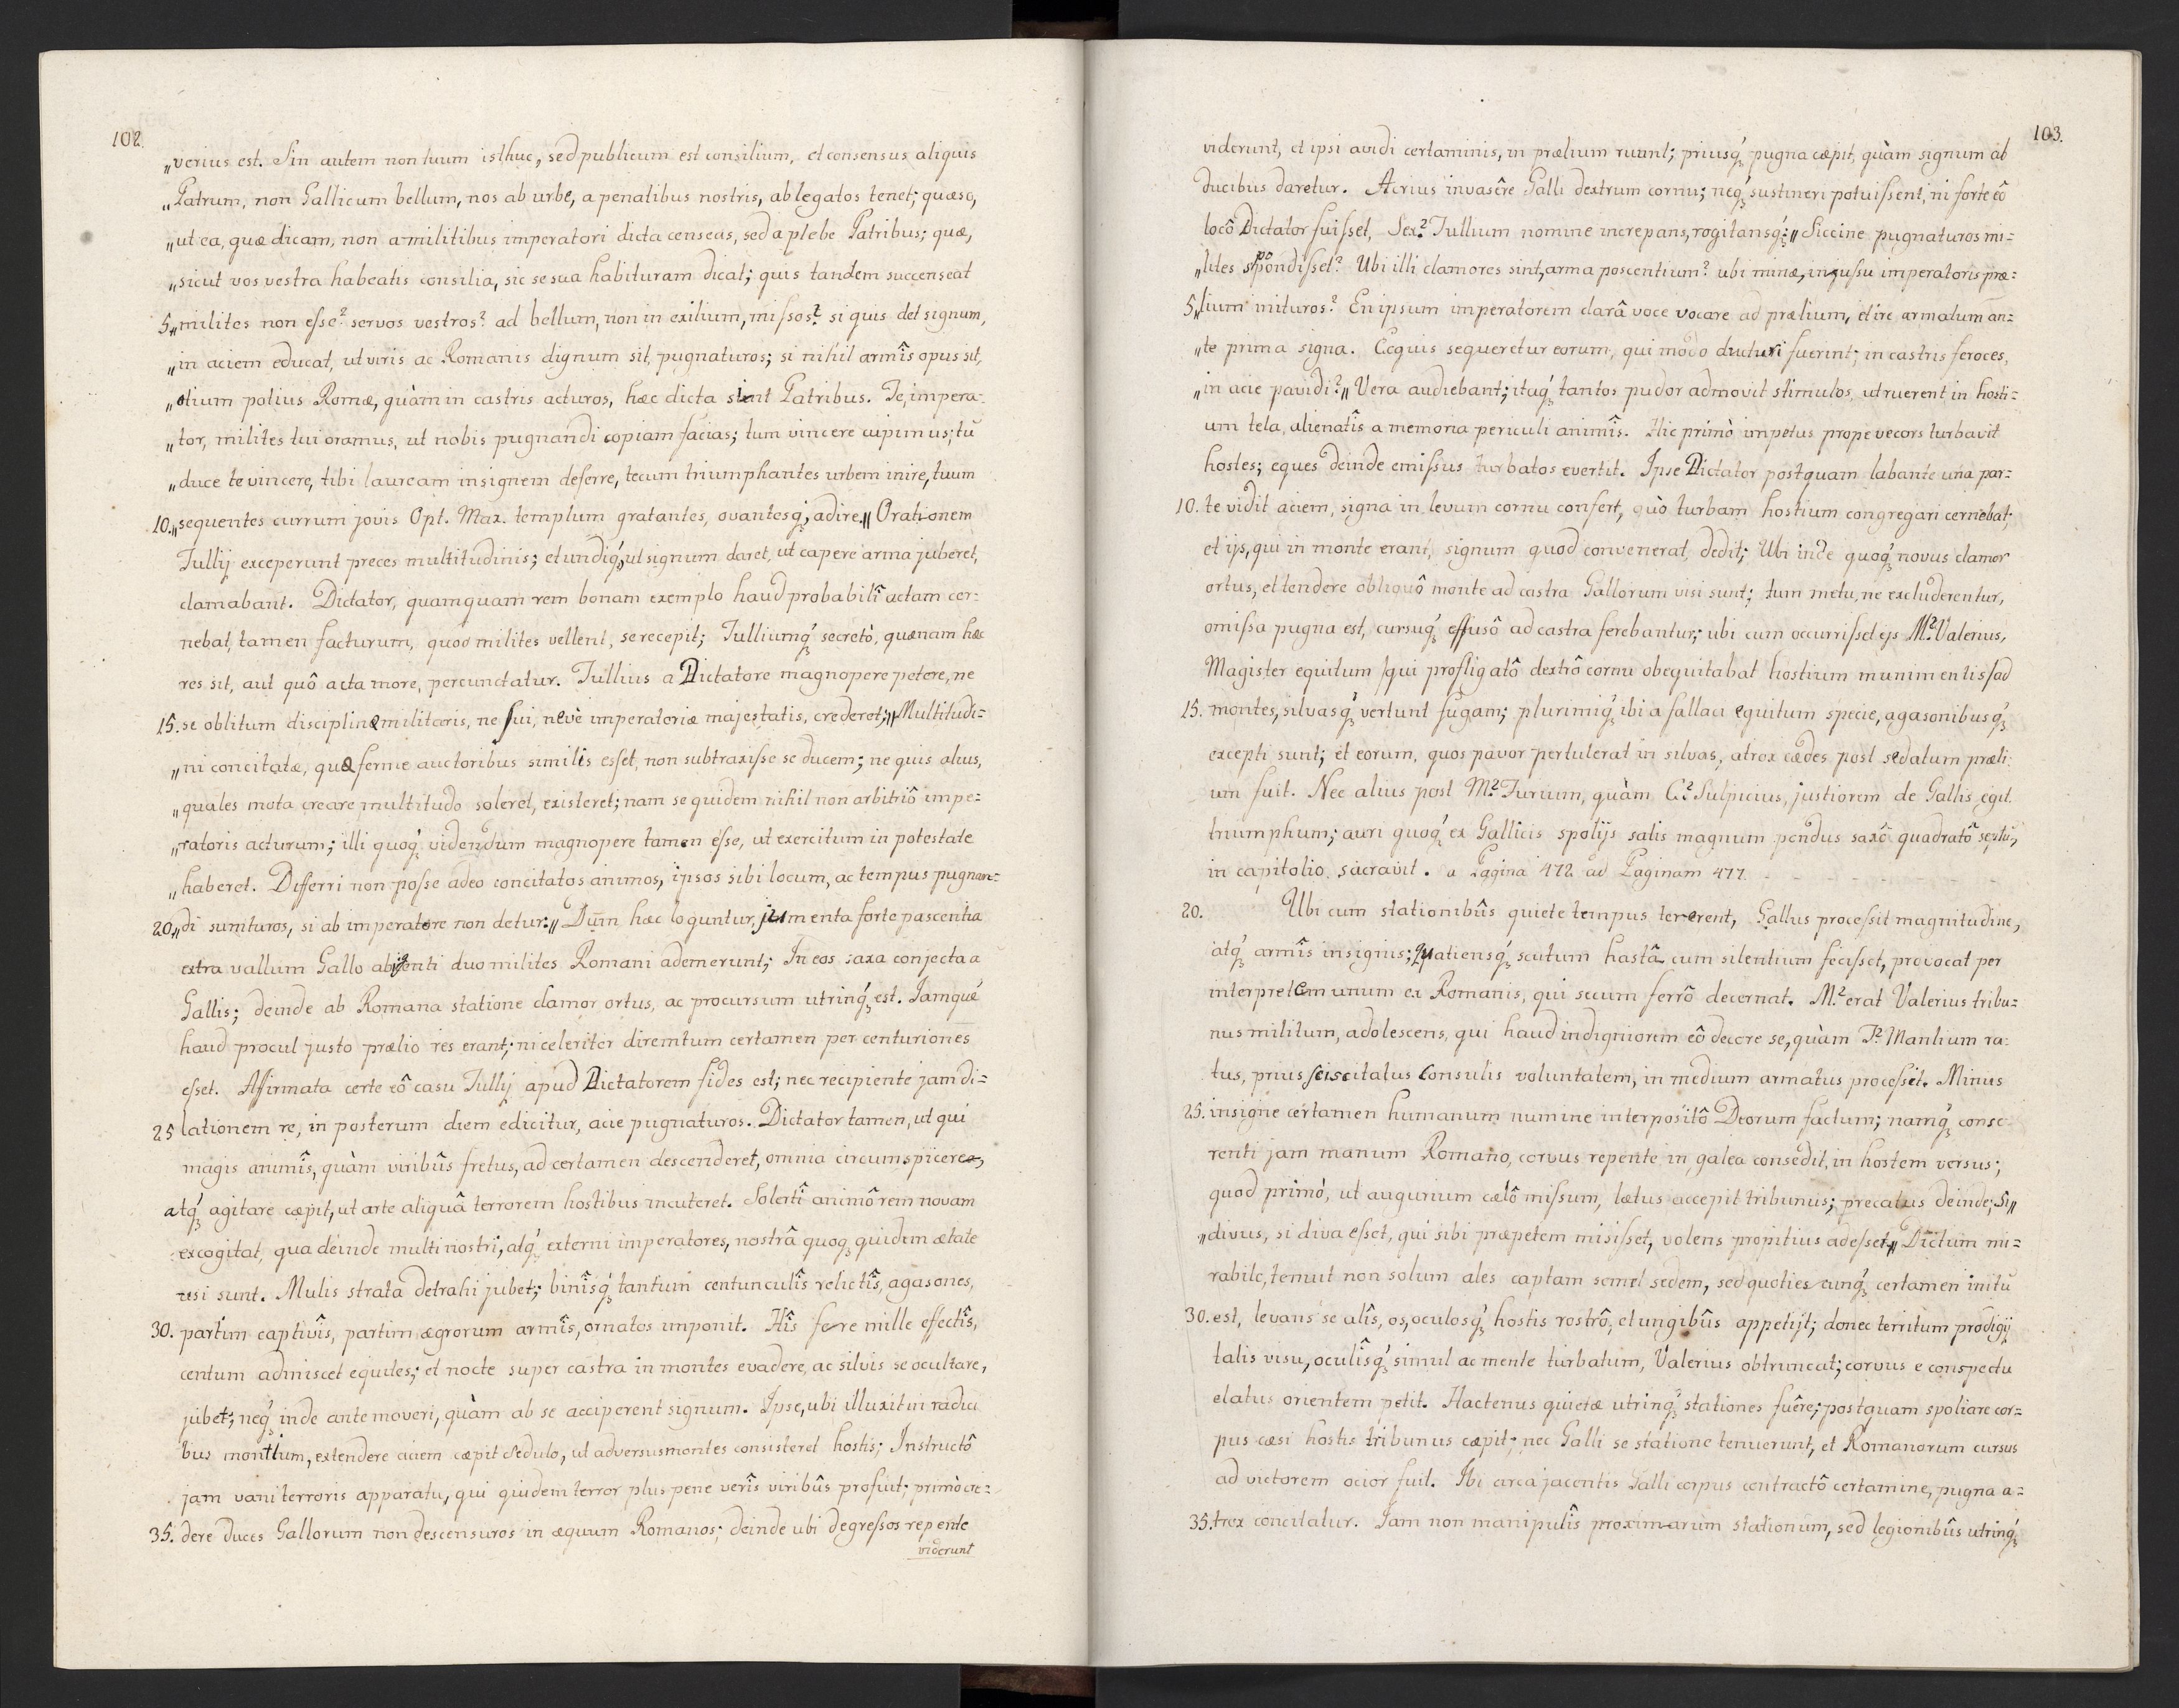 102.
„verius est. Sin autem non tuum isthuc, sed publicum est consilium, et consensus aliquis
„Patrum, non Gallicum bellum, nos ab urbe, a penatibus nostris, ablegatos tenet; quæso,
„ut ea, quæ dicam, non a militibus imperatori dicta censeas, sed a plebe Patribus; quæ,
„sicut vos vestra habeatis consilia, sic se sua habituram dicat; quis tandem succenseat
5„milites non esse? servos vestros? ad bellum, non in exilium, missos? si quis det signum,
„in aciem educat, ut viris ac Romanis dignum sit, pugnaturos; si nihil armîs opus sit,
„otium potius Romæ, quàm in castris acturos, hæc dicta sient Patribus. Te, impera-
„tor, milites tui oramus, ut nobis pugnandi copiam facias; tum vincere cupimus; tũ
„duce te vincere, tibi lauream insignem deferre, tecum triumphantes urbem inire, tuum
10.„sequentes currum jovis Opt. Max. templum gratantes, ovantesq́, adire„ Orationem
Tullij exceperunt preces multitudinis; et undiq́, ut signum daret, ut capere arma juberet,
clamabant. Dictator, quamquam rem bonam exemplo haud probabilî actam cer=
nebat, tamen facturum, quod milites vellent, se recepit; Tulliumq́ secretò, quænam hæc
res sit, aut quô acta more, percunctatur. Tullius a Dictatore magnopere petere, ne
15. se oblitum disciplinæ militaris, ne sui, neve imperatoriæ majestatis, crederet;„Multitudi=
„ni concitatæ, quæ ferme auctoribus similis esset, non subtraxisse se ducem; ne quis alius,
„quales mota creare multitudo soleret, existeret; nam se quidem nihil non arbitriô impe=
„ratoris acturum; illi quoq́ videndum magnopere tamen esse, ut exercitum in potestate
„haberet. Differri non posse adeo concitatos animos, ipsos sibi locum, ac tempus pugnan=
20„di sumturos, si ab imperatore non detur.„ Dum hæc loquntur, jumenta forte pascentia
extra vallum Gallo abigenti duo milites Romani ademerunt; In eos saxa conjecta a
Gallis; deinde ab Romana statione clamor ortus, ac procursum utrinq́ est. Iamqué
haud procul justo prælio res erant; ni celeriter diremtum certamen per centuriones
esset. Affirmata certe eô casu Tullij apud Dictatorem fides est; nec recipiente jam di=
25 lationem re, in posterum diem edicitur, acie pugnaturos. Dictator tamen, ut qui
magis animîs, quàm viribûs fretus, ad certamen descenderet, omnia circumspicere,
atq́ agitare cæpit, ut arte aliquâ terrorem hostibus incuteret. Solertî animô rem novam
excogitat, qua deinde multi nostri, atq́ externi imperatores, nostrâ quoq́ quidem ætate
usi sunt. Mulis strata detrahi jubet; binîsq́ tantum centunculîs relictîs, agasones,
30. partim captivîs, partim ægrorum armîs, ornatos imponit. Hîs fere mille effectîs,
centum admiscet equites; et nocte super castra in montes evadere, ac silvis se ocultare,
jubet; neq́ inde ante moveri, quàm ab se acciperent signum. Ipse, ubi illuxit in radici
bus montium, extendere aciem cæpit sedulo, ut adversus montes consisteret hostis; Instructô
jam vani terroris apparatu, qui quidem terror plus pene verîs viribûs profuit; primò cre=
35. dere duces Gallorum non descensuros in æquum Romanos; deinde ubi degressos repente
viderunt
103.
viderunt, et ipsi avidi certaminis, in prælium ruunt; priusq́ pugna cæpit, quàm signum ab
ducibus daretur. Acrius invasêre Galli dextrum cornu; neq́ sustineri potuissent, ni forte eô
locô Dictator fuisset, Sex? Tullium nomine increpans, rogitansq́:„ Siccine pugnaturos mi=
„lites spôndisset? Ubi illi clamores sint, arma poscentium? ubi minæ, injussu imperatoris præ=
5„lium inituros? En ipsum imperatorem clarâ voce vocare ad prælium, et ire armatum an=
„te prima signa. Ecquis sequeretur eorum, qui modo ducturi fuerint; in castris feroces,
„in acie pavidi?„ Vera audiebant; itaq́ tantos pudor admovit stimulos, ut ruerent in hosti=
um tela, alienatîs a memoria periculi animîs. Hic primò impetus prope vecors turbavit
hostes; eques deinde emissus turbatos evertit. Ipse Dictator postquam labante una par=
10. te vidit aciem, signa in levum cornu confert, quò turbam hostium congregari cernebat;
et ijs, qui in monte erant, signum quod convenerat, dedit; Ubi inde quoq́ novus clamor
ortus, et tendere obliquô monte ad castra Gallorum visi sunt; tum metu, ne excluderentur,
omissa pugna est, cursuq́ effusô ad castra ferebantur; ubi cum occurrisset ejs M? Valerius,
Magister equitum /qui profligatô dextrô cornu obequitabat hostium munimentis/ ad
15. montes, silvasq́ vertunt fugam; plurimiq́ ibi a fallaci equitum specie, agasonibusq́
excepti sunt; et eorum, quos pavor pertulerat in silvas, atrox cædes post sedatum præli:
um fuit. Nec alius post M? Furium, quàm C? Sulpicius, justiorem de Gallis egit
triumphum; auri quoq́ ex Gallicis spolijs satis magnum pondus saxô quadratô septũ,
in capitolio sacravit. a Pagina 472 ad Paginam 477.
20. Ubi cum stationibûs quiete tempus tererent, Gallus processit magnitudine,
atq́ armîs insignis; quatiensq́ scutum hastâ cum silentium fecisset, provocat per
interpretem unum ex Romanis, qui secum ferrô decernat. M? erat Valerius tribu=
nus militum, adolescens, qui haud indigniorem eô decore se, quàm T? Manlium ra=
tus, prius sciscitatus Consulis voluntatem, in medium armatus processit. Minus
25. insigne certamen humanum numine interpositô Deorum factum; namq́ conse
renti jam manum Romano, corvus repente in galea consedit, in hostem versus;
quod primò, ut augurium cælô missum, lætus accepit tribunus; precatus deinde; Si„
„divus, si diva esset, qui sibi præpetem misisset, volens propitius adesset„ Dictum mi=
rabile, tenuit non solum ales captam semel sedem, sed quoties cunq́ certamen initũ
30. est, levans se alîs, os, oculosq́ hostis rostrô, et ungibûs appetijt; donec territum prodigij
talis visu, oculîsq́ simul ac mente turbatum, Valerius obtruncat; corvus e conspectu
elatus orientem petit. Hactenus quietæ utrinq́ stationes fuêre; postquam spoliare cor=
pus cæsi hostis tribunus cæpit; nec Galli se statione tenuerunt, et Romanorum cursus
ad victorem ocior fuit. Ibi circa jacentis Galli corpus contractô certamine, pugna a=
35. trox concitatur. Iam non manipulîs proximarum stationum, sed legionibûs utrinq́